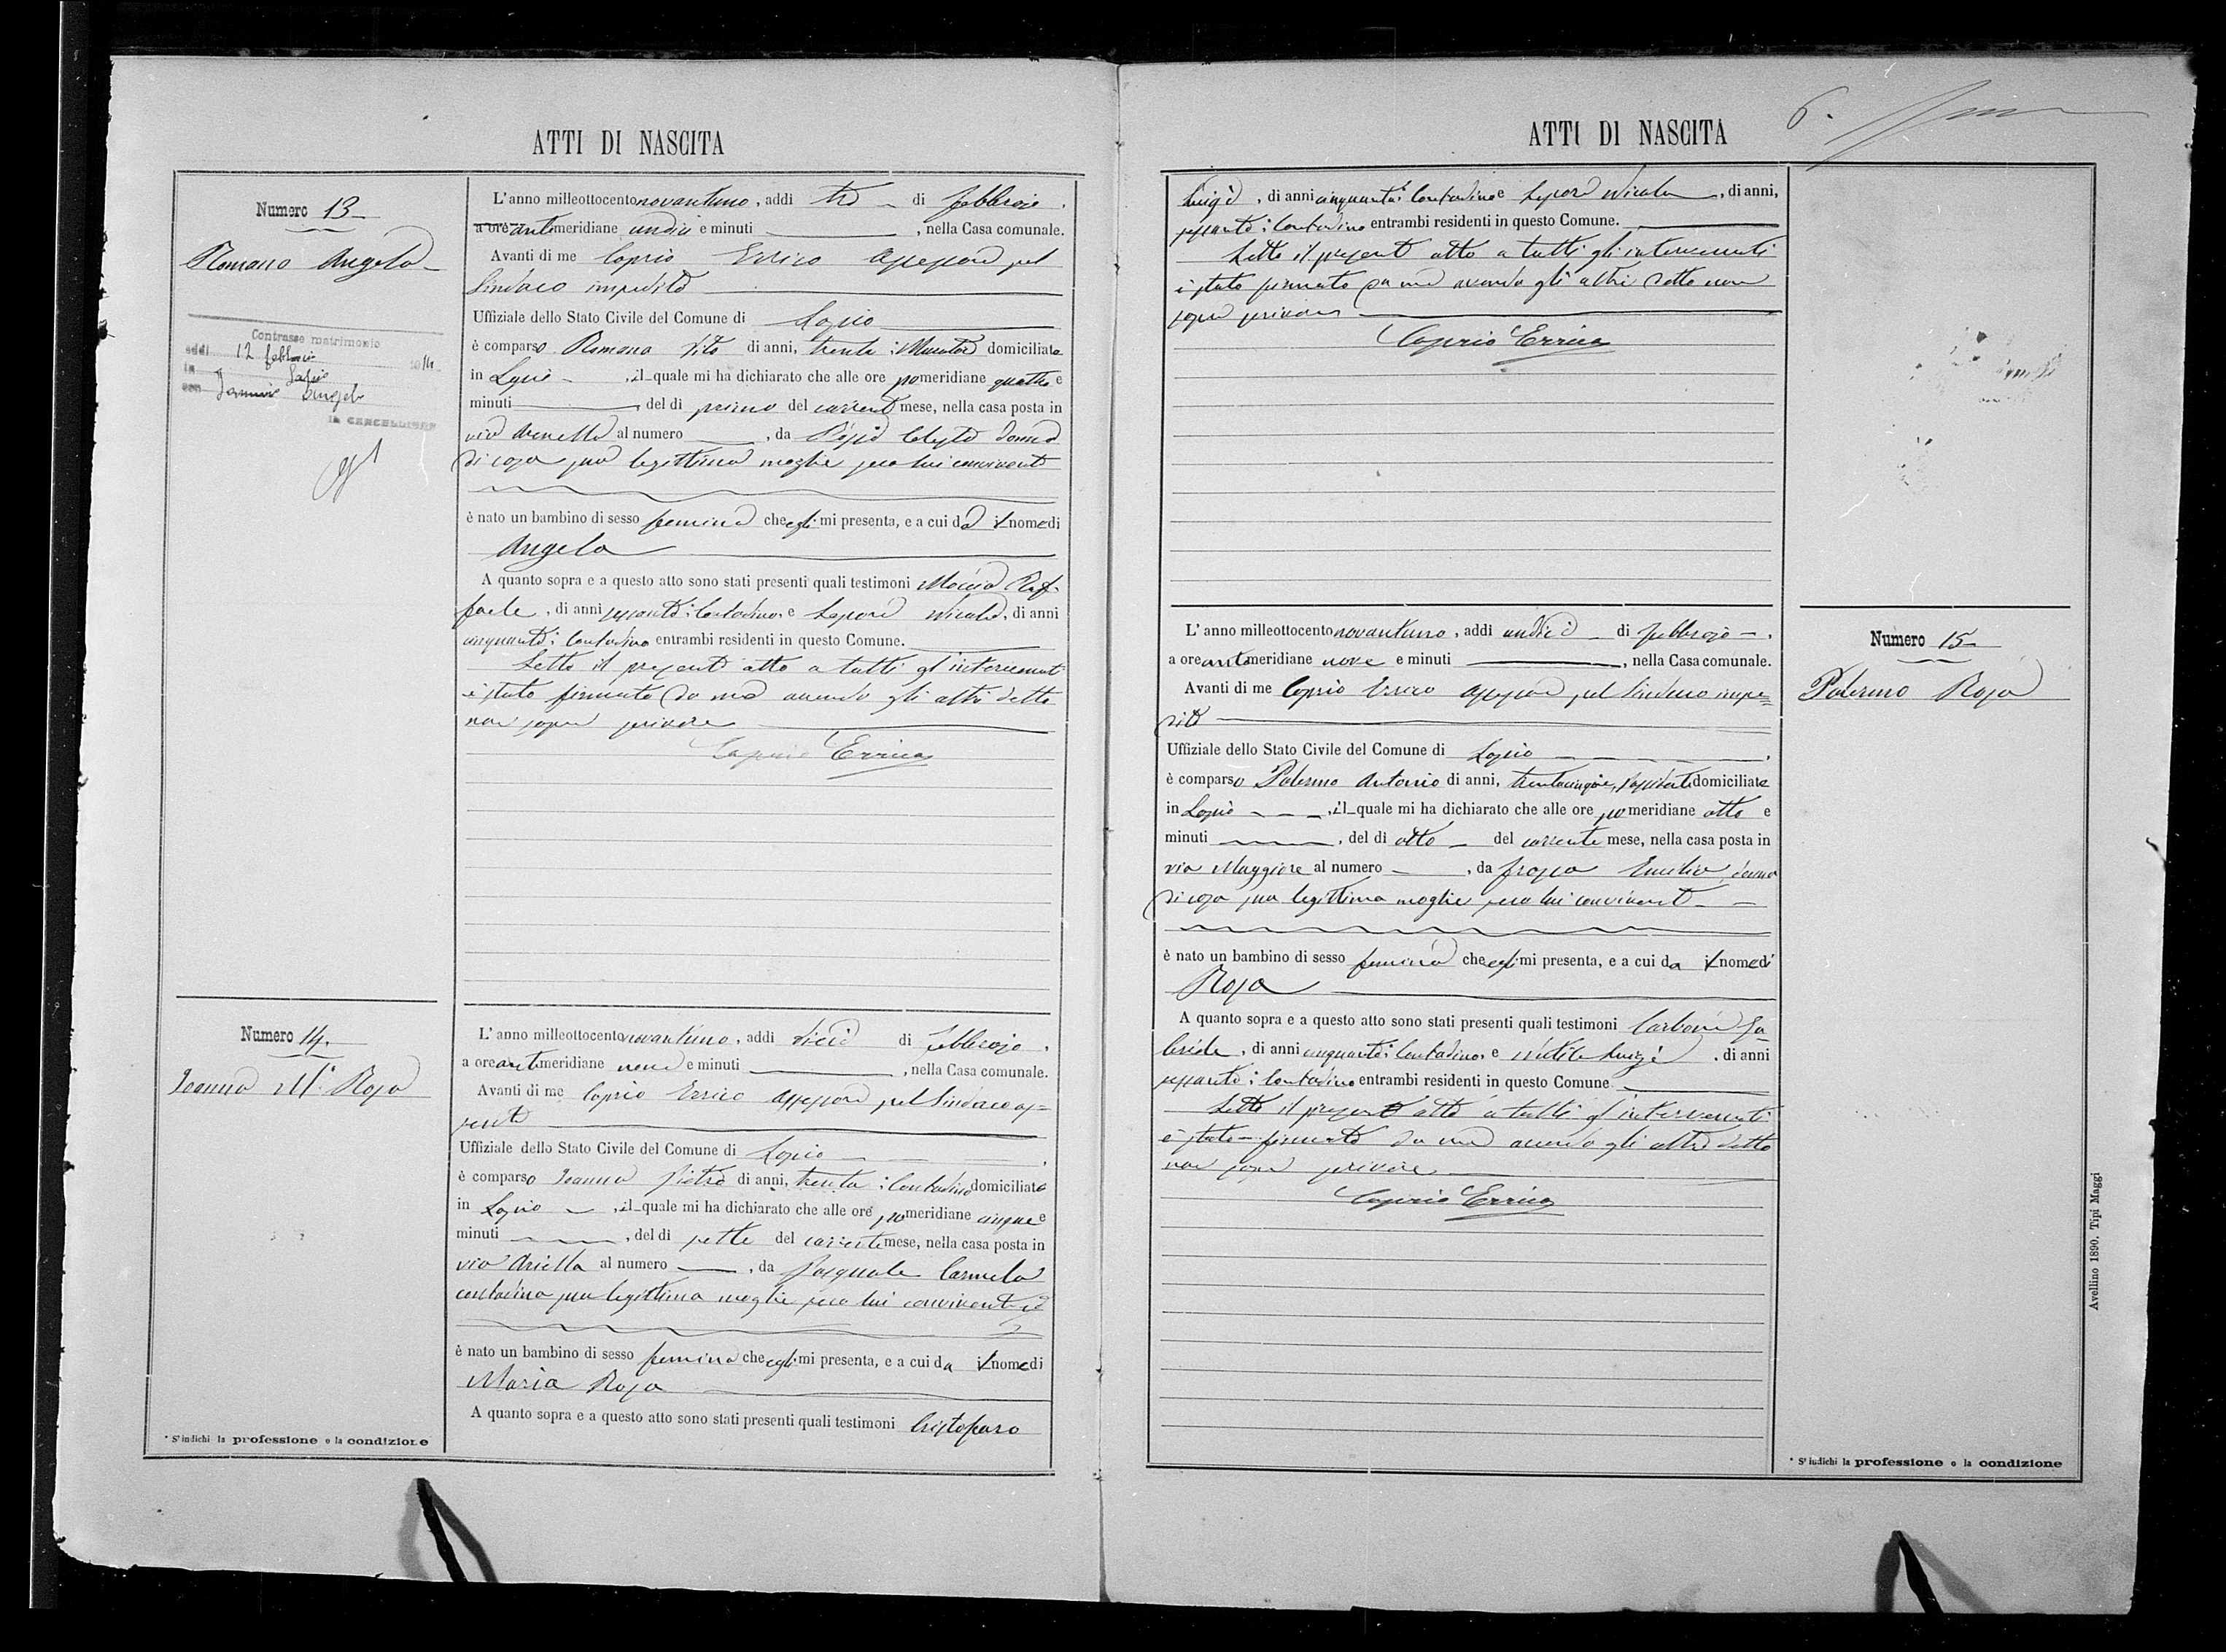 ATTI DI NASCITA
Numero 13
Romano Angela
Contrasse matrimonio
addì 12 febbraio
in Lapio
con
IL CANCELLIERE
L'anno milleottocento novantuno, addì tre di febbraio,
a ore antimeridiane undici e minuti , nella Casa comunale.
Avanti di me Caprio Errico assessore pel
Sindaco impedito
Uffiziale dello Stato Civile del Comune di Lapio
è comparso Romano Vito di anni, trenta : Muratore domiciliato
in Lapio , il quale mi ha dichiarato che alle ore pomeridiane quattro e
minuti , del dì primo del corrente mese, nella casa posta in
via al numero , da Celeste donna
di casa sua legittima moglie seco lui convivente
è nato un bambino di sesso feminino che egli mi presenta, e a cui dà il nome di
Angela
A quanto sopra e a questo atto sono stati presenti quali testimoni Moccia Raf-
faele, di anni sessanta : Contadino, e Lepore Nicola, di anni
cinquanta : Contadino entrambi residenti in questo Comune.
Letto il presente atto a tutti gl'intervenuti
è stato firmato da me avendo gli altri detto
non saper scrivere
Caprio Errico
Numero 14.
Ioanna Mª Rosa
L'anno milleottocento novantuno, addì dieci di febbraio,
a ore antimeridiane nove e minuti , nella Casa comunale.
Avanti di me Caprio Errico assessore pel Sindaco as-
sente
Uffiziale dello Stato Civile del Comune di Lapio
è comparso Ioanna Pietro di anni, trenta : Contadino domiciliato
in Lapio , il quale mi ha dichiarato che alle ore pomeridiane cinque e
minuti , del dì sette del corrente mese, nella casa posta in
via Ariella al numero , da Pasquale Carmela
contadina sua legittima moglie seco lui convivente
è nato un bambino di sesso feminino che egli mi presenta, e a cui da il nome di
Maria Rosa
A quanto sopra e a questo atto sono stati presenti quali testimoni Cristofaro
* S'indichi la professione o la condizione
ATTI DI NASCITA
6.
Luigi, di anni cinquanta : Contadino e Lepore Nicola, di anni,
sessanta : Contadino entrambi residenti in questo Comune.
Letto il presente atto a tutti gli intervenuti
è stato firmato da me avendo gli altri detto non
saper scrivere
Caprio Errico
L'anno milleottocento novantuno, addì undici di febbraio,
a ore antimeridiane nove e minuti , nella Casa comunale.
Avanti di me Caprio Errico assessore pel Sindaco impe=
dito
Uffiziale dello Stato Civile del Comune di Lapio
è comparso Palermo Antonio di anni, trentacinque, domiciliato
in Lapio , il quale mi ha dichiarato che alle ore pomeridiane otto e
minuti , del dì otto del corrente mese, nella casa posta in
via Maggiore al numero , da Emilia donna
di casa sua legittima moglie seco lui convivente
è nato un bambino di sesso feminino che egli mi presenta, e a cui da il nome di
Rosa
A quanto sopra e a questo atto sono stati presenti quali testimoni Carbone
, di anni cinquanta : Contadino, e Luigi, di anni
sessanta : Contadino entrambi residenti in questo Comune
Letto il presente atto a tutti gl'intervenuti
è stato firmato da me avendo gli altri detto
non saper scrivere
Caprio Errico
Numero 15
Palermo Rosa
Avellino 1890. Tipi Maggi
* S'indichi la professione o la condizione